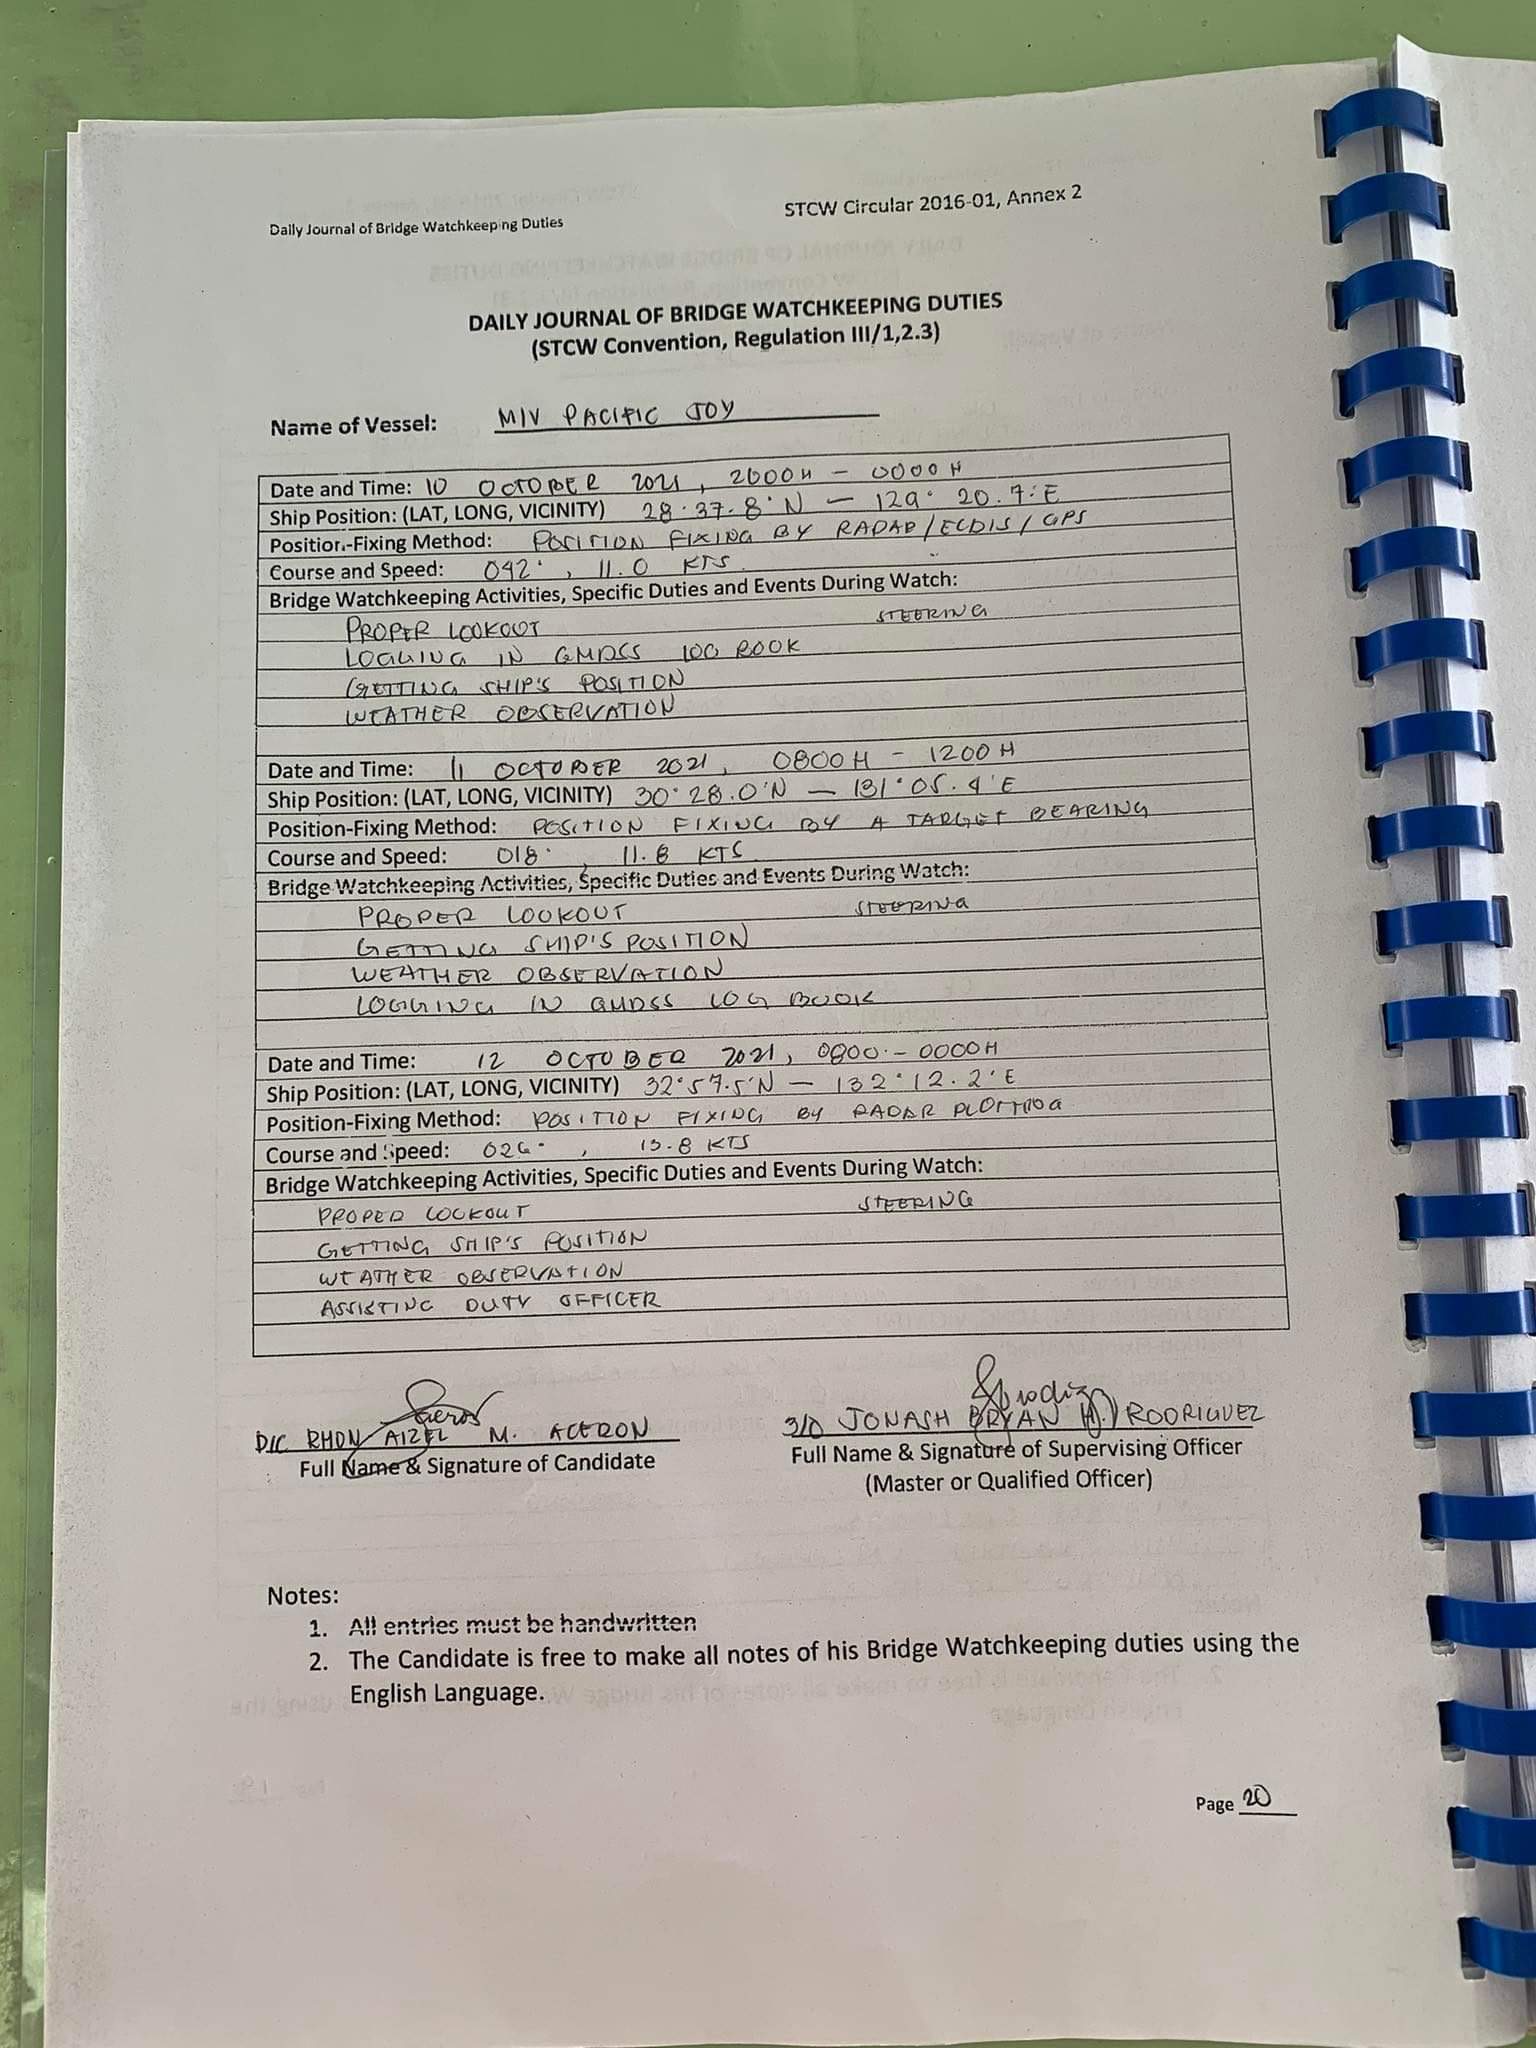 Daily Journal of Bridge Watchkeeping Duties
STCW Circular 2016-01, Annex 2
DAILY JOURNAL OF BRIDGE WATCHKEEPING DUTIES
(STCW Convention, Regulation III/1,2.3)
Name of Vessel: M/V PACIFIC JOY
Date and Time: 10 OCTOBER 2021, 2000H - 0000H
Ship Position: (LAT, LONG, VICINITY) 28°37.8'N - 129° 20.7'E
Position-Fixing Method: POSITION FIXING BY RADAR/ECDIS/GPS
Course and Speed: 042°, 11.0 KTS
Bridge Watchkeeping Activities, Specific Duties and Events During Watch:
PROPER LOOKOUT STEERING
LOGGING IN GMDSS LOG BOOK
GETTING SHIP'S POSITION
WEATHER OBSERVATION
Date and Time: 11 OCTOBER 2021, 0800H - 1200H
Ship Position: (LAT, LONG, VICINITY) 30°28.0'N - 131°05.4'E
Position-Fixing Method: POSITION FIXING BY A TARGET BEARING
Course and Speed: 018°, 11.8 KTS
Bridge Watchkeeping Activities, Specific Duties and Events During Watch:
PROPER LOOKOUT STEERING
GETTING SHIP'S POSITION
WEATHER OBSERVATION
LOGGING IN GMDSS LOG BOOK
Date and Time: 12 OCTOBER 2021, 0800 - 0000H
Ship Position: (LAT, LONG, VICINITY) 32°57.5'N - 132°12.2'E
Position-Fixing Method: POSITION FIXING BY RADAR PLOTTING
Course and Speed: 026°, 13.8 KTS
Bridge Watchkeeping Activities, Specific Duties and Events During Watch:
PROPER LOOKOUT STEERING
GETTING SHIP'S POSITION
WEATHER OBSERVATION
ASSISTING DUTY OFFICER
D/C RHON AIZEL M. ACERON
3/O JONASH BRYAN H. RODRIGUEZ
Full Name & Signature of Candidate
Full Name & Signature of Supervising Officer
(Master or Qualified Officer)
Notes:
1. All entries must be handwritten
2. The Candidate is free to make all notes of his Bridge Watchkeeping duties using the
English Language.
Page 20